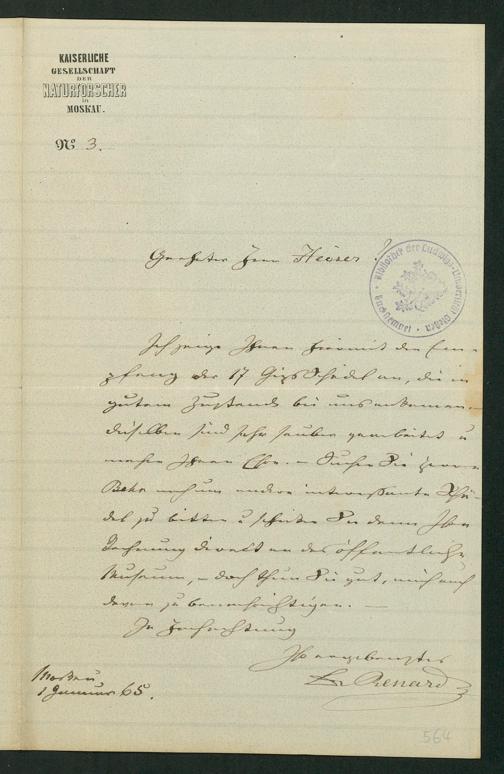 KAISERLICHE
GESELLSCHAFT
DER
NATURFORSCHER
in
MOSKAU.
No 3.
Geehrter Herr Heuser!
Bibliothek der Ludwigs-Universität Gießen
Ich zeige Ihnen hiermit den Em-
pfang der 17 Gipsschädel an, die in
gutem Zustande bei uns ankamen.
dieselben sind sehr sauber gearbeitet u
machen Ihnen Ehre. – Suchen Sie Herrn
noch um andere interessante Schä-
del zu bitten u schicken Sie dann Ihre
Rechnung direkt an das öffentliche
Museum, – doch thun Sie gut, mich auch
davon zu benachrichtigen. –
In Hochachtung
Ihr ergebenster
Dr Renard
Moskau
1 Januar 65.
564